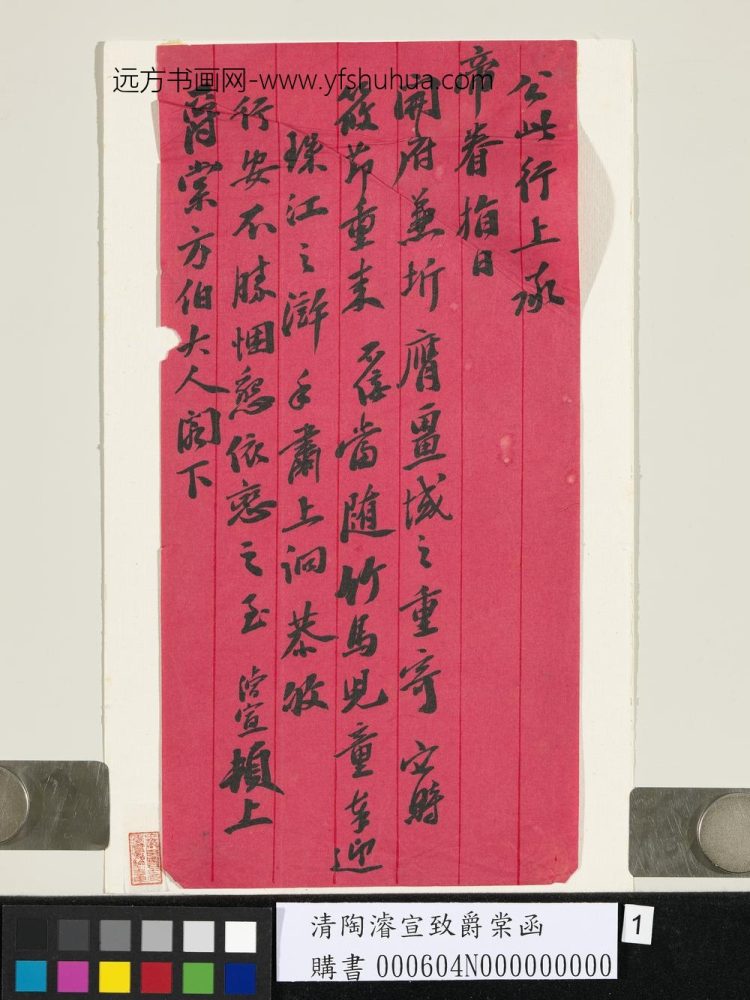 远方书画网-www.yfshuhua.com
公此行上承
帝眷指日
開府兼圻膺畺域之重寄
節重來 當隨竹馬兒童奉迎
珠江之滸手肅上泐恭敬
行安不勝悃款依戀之至 濬宣頓上
爵棠方伯大人閣下
清陶濬宣致爵棠函
購書 000604N000000000
1